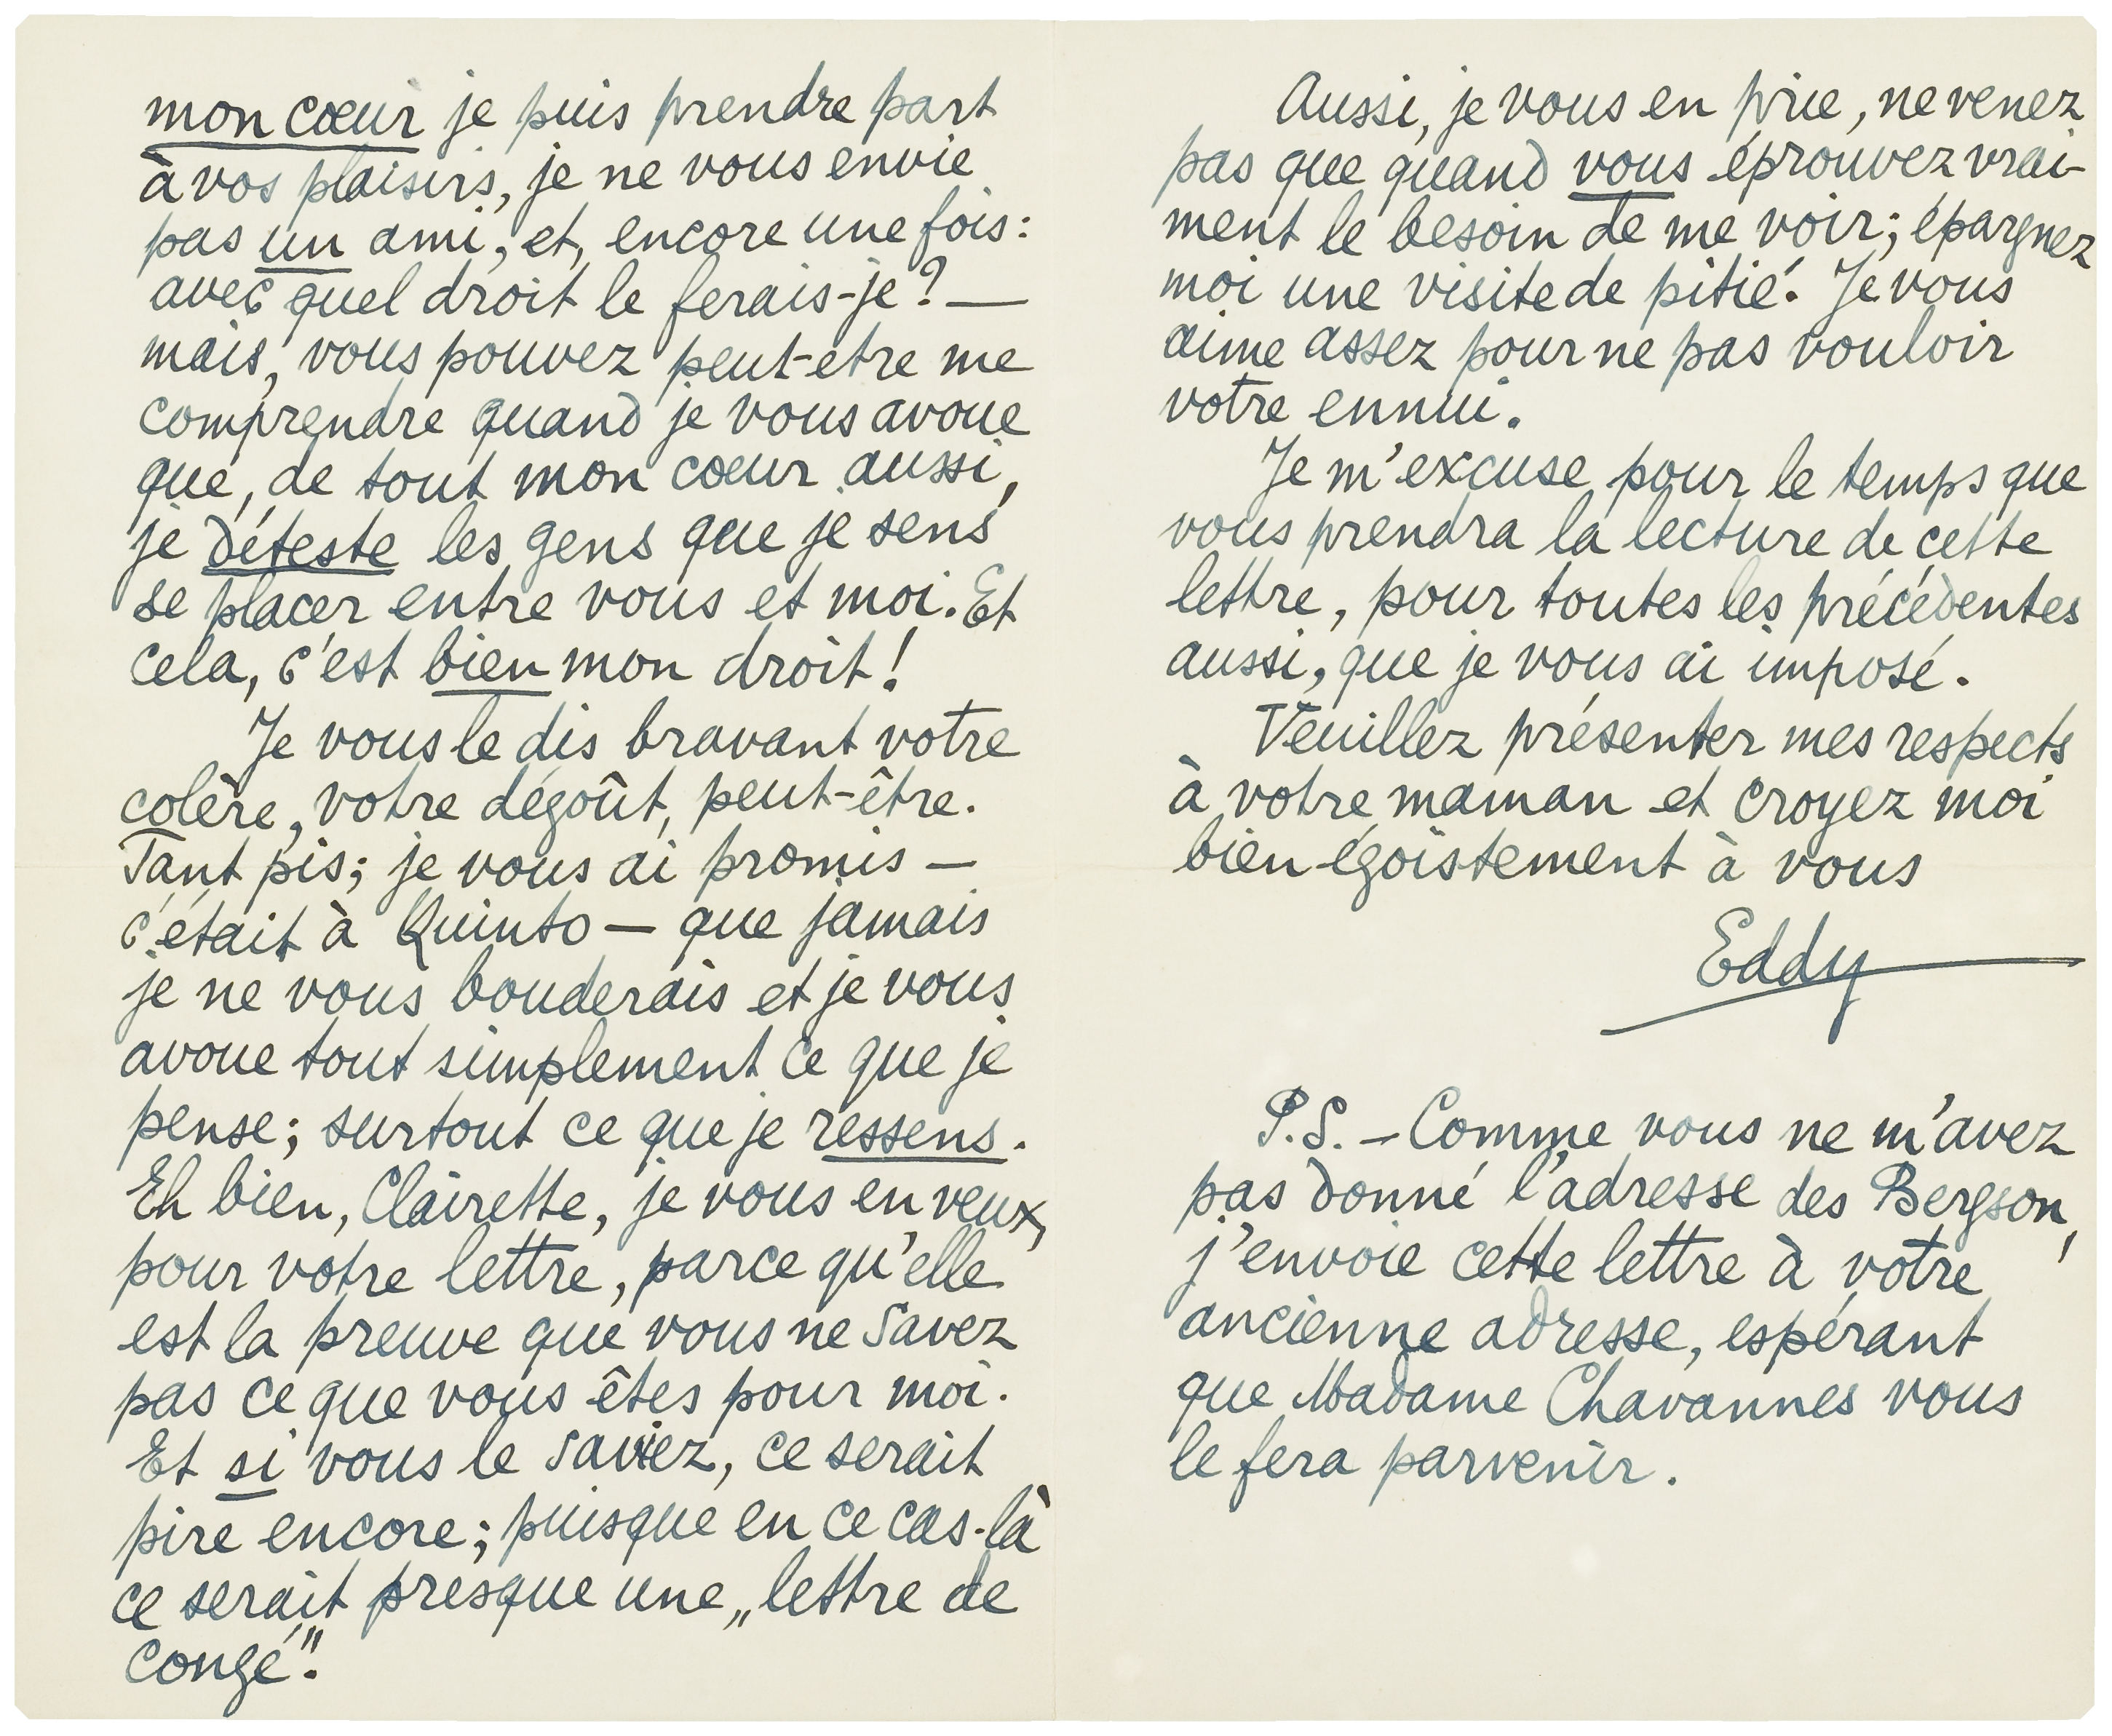 mon cœur je puis prendre part
à vos plaisirs, je ne vous envie
pas un ami, et, encore une fois:
avec quel droit le ferais-je? —
mais, vous pouvez peut-etre me
comprendre quand je vous avoue
que, de tout mon cœur aussi,
je déteste les gens que je sens
se placer entre vous et moi. Et
cela, c'est bien mon droit!
Je vous le dis bravant votre
colère, votre dégoût, peut-être.
Tant pis; je vous ai promis —
c'était à Quinto — que jamais
je ne vous bouderais et je vous
avoue tout simplement ce que je
pense; surtout ce que je ressens.
Eh bien, Clairette, je vous en veux,
pour votre lettre, parce qu'elle
est la preuve que vous ne savez
pas ce que vous êtes pour moi.
Et si vous le saviez, ce serait
pire encore; puisque en ce cas-là
ce serait presque une „lettre de
congé".
Aussi, je vous en prie, ne venez
pas que quand vous éprouvez vrai-
ment le besoin de me voir; épargnez
moi une visite de pitié. Je vous
aime assez pour ne pas vouloir
votre ennui.
Je m'excuse pour le temps que
vous prendra la lecture de cette
lettre, pour toutes les précédentes
aussi, que je vous ai imposé.
Veuillez présenter mes respects
à votre maman et croyez moi
bien égoistement à vous
Eddy
P.S. — Comme vous ne m'avez
pas donné l'adresse des Bergson,
j'envoie cette lettre à votre
ancienne adresse, espérant
que Madame Chavannes vous
le fera parvenir.